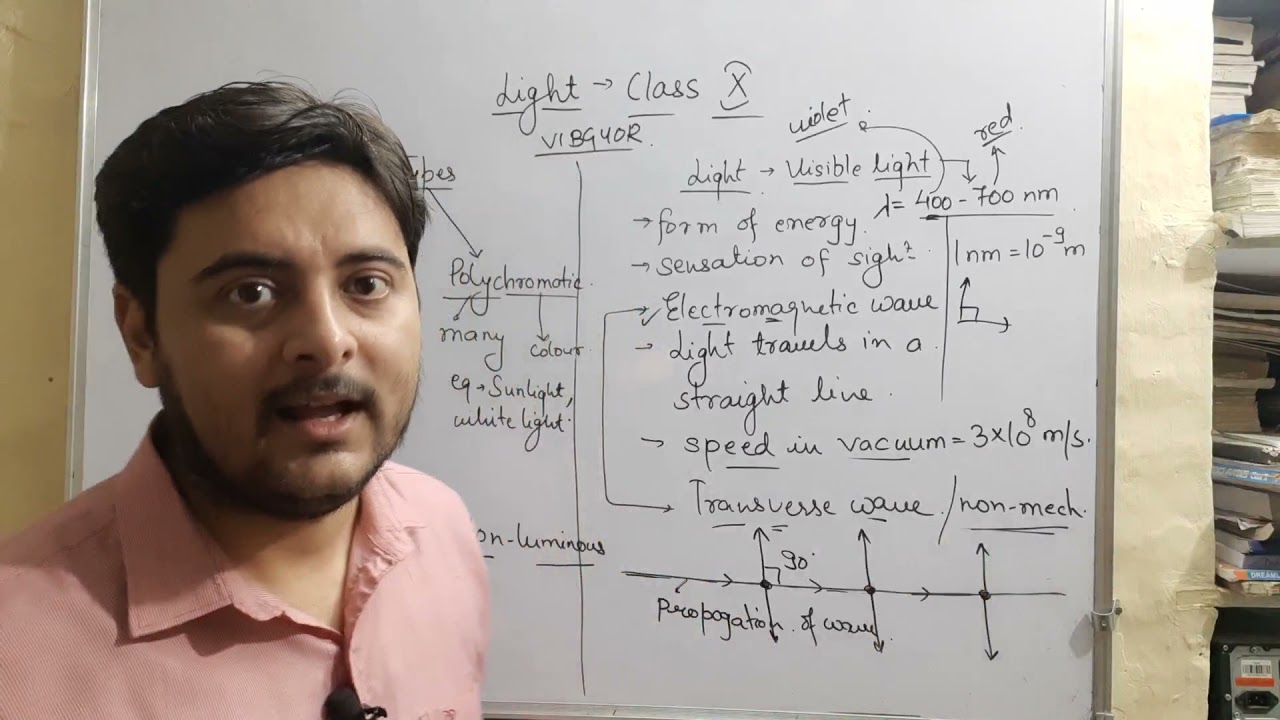 Light → Class X
VIBGYOR.
Types
Polychromatic.
many
colour.
eg → Sunlight,
white light.
on-luminous
violet.
red.
Light → Visible light
λ = 400 - 700 nm
→ form of energy.
→ sensation of sight.
1 nm = 10⁻⁹ m
→ Electromagnetic wave
→ Light travels in a
straight line.
→ speed in vacuum = 3×10⁸ m/s.
Transverse wave / non-mech.
90°
Propogation of wave.
DREAML